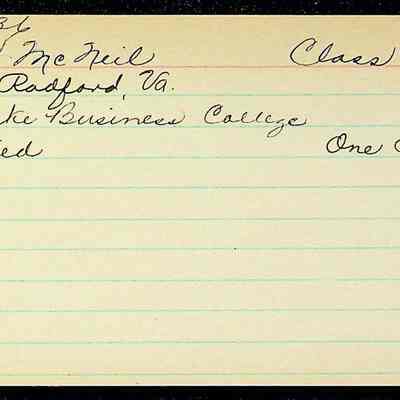 36
McNeil Class
Radford, Va.
ke Business College
ed One